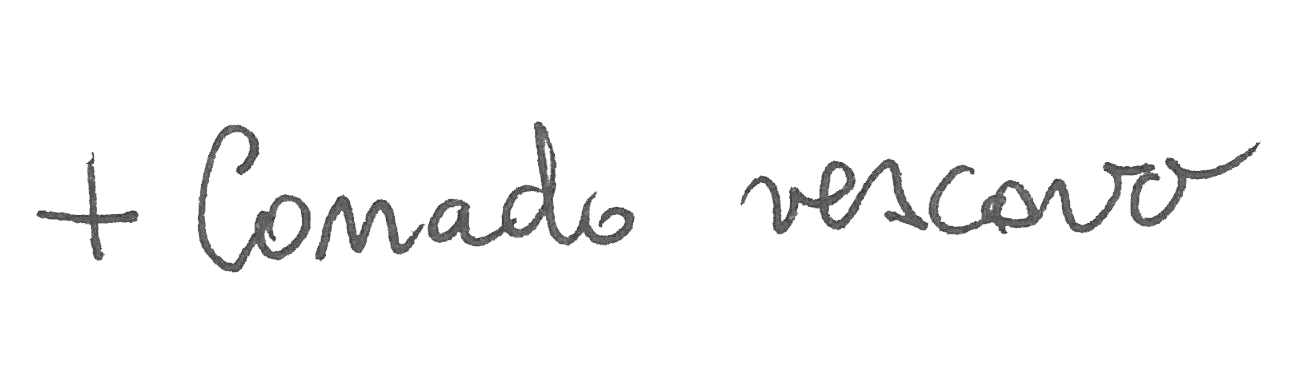 + Corrado vescovo